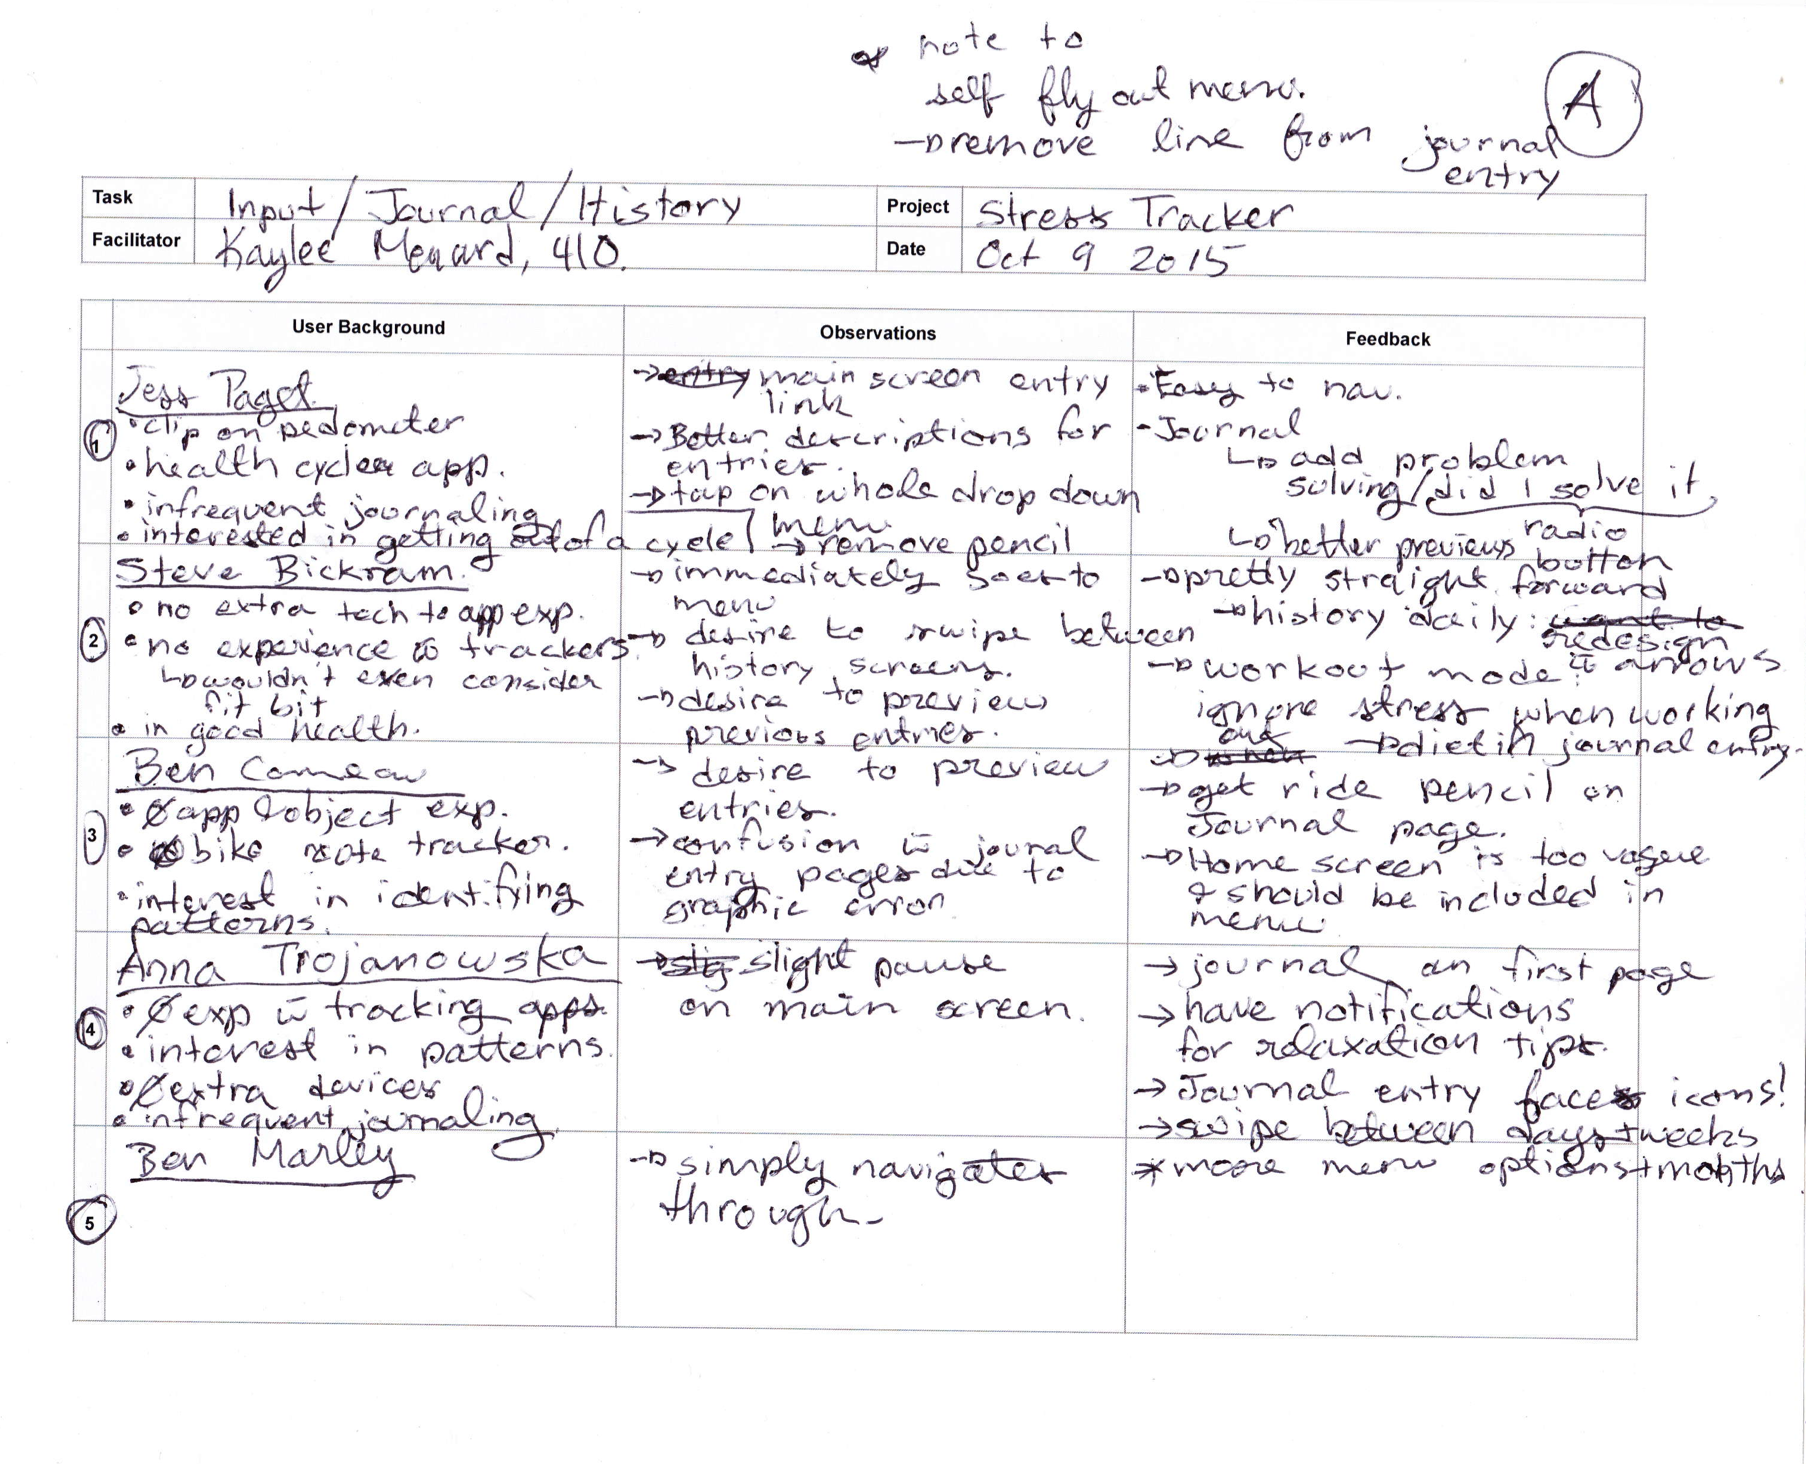 * note to
self fly out menu.
→ remove line from journal
entry
A
Task Input/Journal/History
Project Stress Tracker
Facilitator Kaylee Menard, 410.
Date Oct 9 2015
User Background
Observations
Feedback
1
Jess Paget
• clip on pedometer
• health cycle app.
• infrequent journaling
• interested in getting out of a cycle
→ entry main screen entry
link
→ Better descriptions for
entries.
→ tap on whole drop down
menu
→ remove pencil
• Easy to nav.
- Journal
↳ add problem
solving/did I solve it,
radio
button
↳ better previews
2
Steve Bickram.
• no extra tech to app exp.
• no experience w̄ trackers
↳ wouldn't even consider
fit bit
• in good health.
→ immediately goes to
menu
→ desire to swipe between
history screens.
→ desire to preview
previous entries.
→ pretty straight forward
→ history daily: want to
redesign
w̄ arrows
→ workout mode:
ignore stress when working
out
→ diet in journal entry.
3
Ben Comeau
• Ø app & object exp.
• bike route tracker.
• interest in identifying
patterns.
→ desire to preview
entries.
→ confusion w̄ jounal
entry pages due to
graphic error.
→ when
→ get ride pencil on
Journal page.
→ Home screen is too vague
& should be included in
menu.
4
Anna Trojanowska
• Ø exp w̄ tracking apps.
• interest in patterns.
• Ø extra devices
• infrequent journaling.
→ slig slight pause
on main screen.
→ journal on first page
→ have notifications
for relaxation tips.
→ Journal entry faces icons!
→ swipe between days+weeks
+months
* more menu options
5
Ben Marley
→ simply navigates
through.